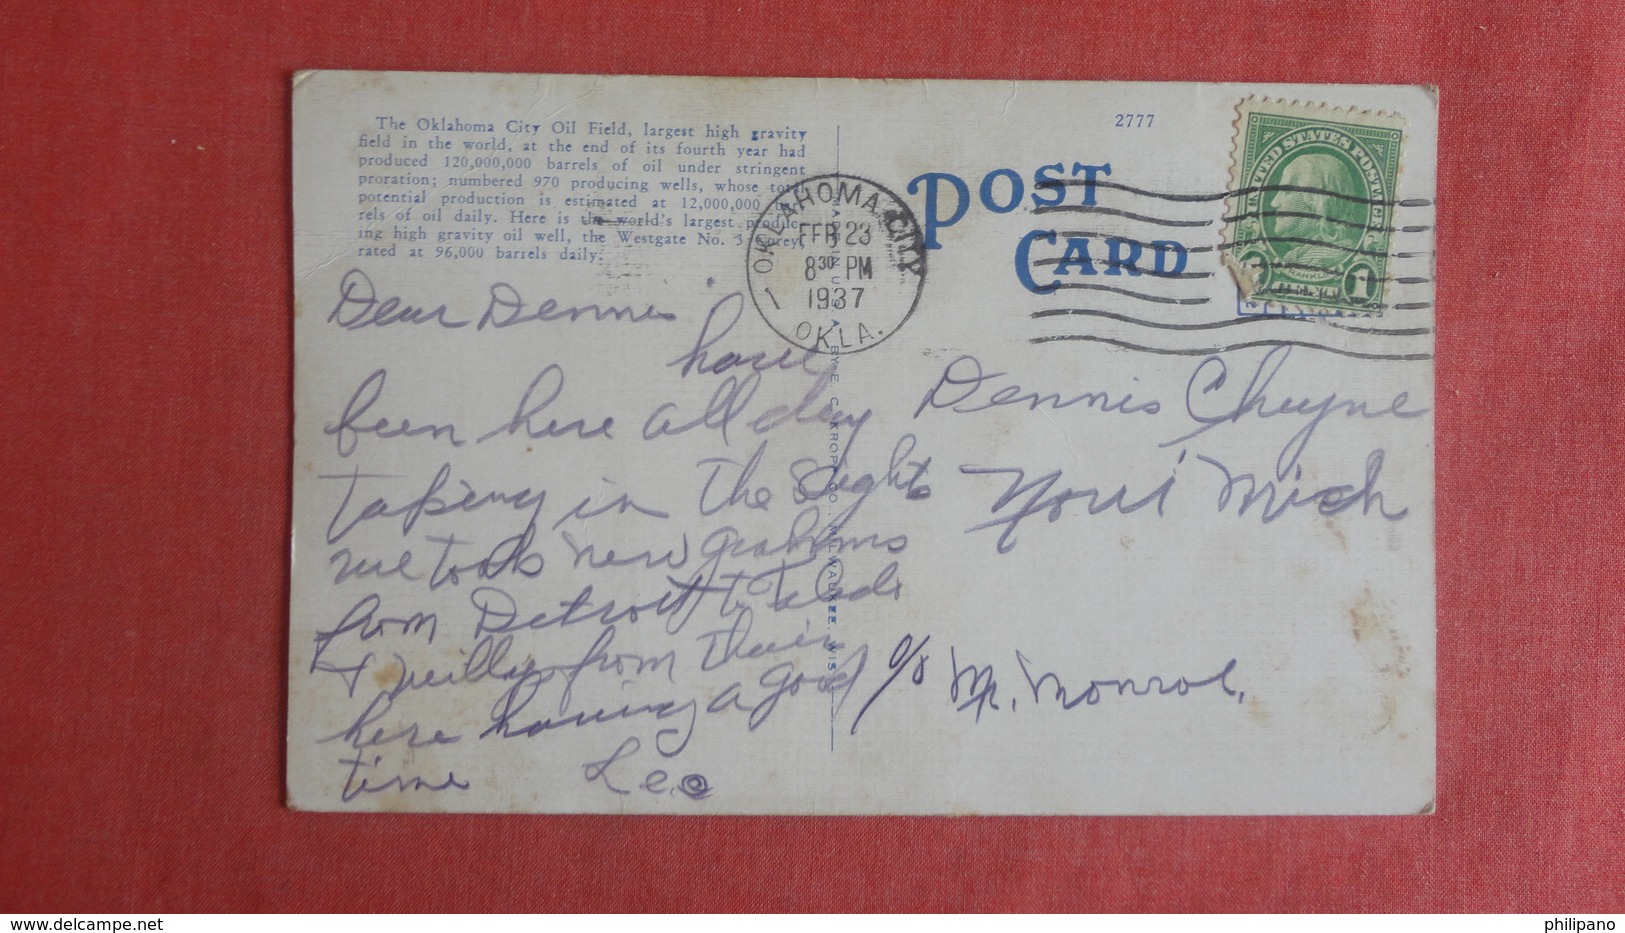 The Oklahoma City Oil Field, largest high gravity
field in the world, at the end of its fourth year had
produced 120,000,000 barrels of oil under stringent
proration; numbered 970 producing wells, whose total
potential production is estimated at 12,000,000 bar-
rels of oil daily. Here is the world's largest produc-
ing high gravity oil well, the Westgate No. 3
rated at 96,000 barrels daily.
2777
POST
CARD
UNITED STATES POSTAGE
FRANKLIN
1
1
OKLAHOMA CITY
1
FEB 23
8 30 PM
1937
OKLA.
MADE IN U.S.A. BY E. C. KROPP CO., MILWAUKEE, WIS
Dear Dennis
have
been here all day
taking in the sights
we took new grahams
from Detroit to
+ from their
here having a good
time Leo
Dennis Cheyne
Mich
c/o Mr. Monroe.
delcampe.net
philipano